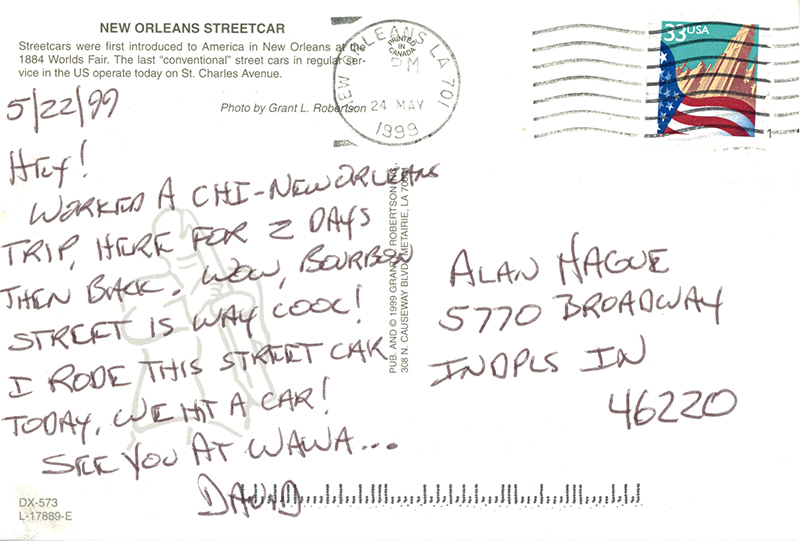 NEW ORLEANS STREETCAR
Streetcars were first introduced to America in New Orleans at the
1884 Worlds Fair. The last "conventional" street cars in regular ser-
vice in the US operate today on St. Charles Avenue.
Photo by Grant L. Robertson
5/22/99
HEY!
WORKED A CHI-NEW ORLEANS
TRIP, HERE FOR 2 DAYS
THEN BACK. WOW, BOURBON
STREET IS WAY COOL!
I RODE THIS STREET CAR
TODAY, WE HIT A CAR!
SEE YOU AT WAWA...
DAVID
DX-573
L-17889-E
PUB. AND © 1999 GRANT L. ROBERTSON
308 N. CAUSEWAY BLVD. METAIRIE, LA
PRINTED
IN
CANADA
NEW ORLEANS LA 701
PM
24 MAY
1999
33USA
ALAN HAGUE
5770 BROADWAY
INDPLS IN
46220